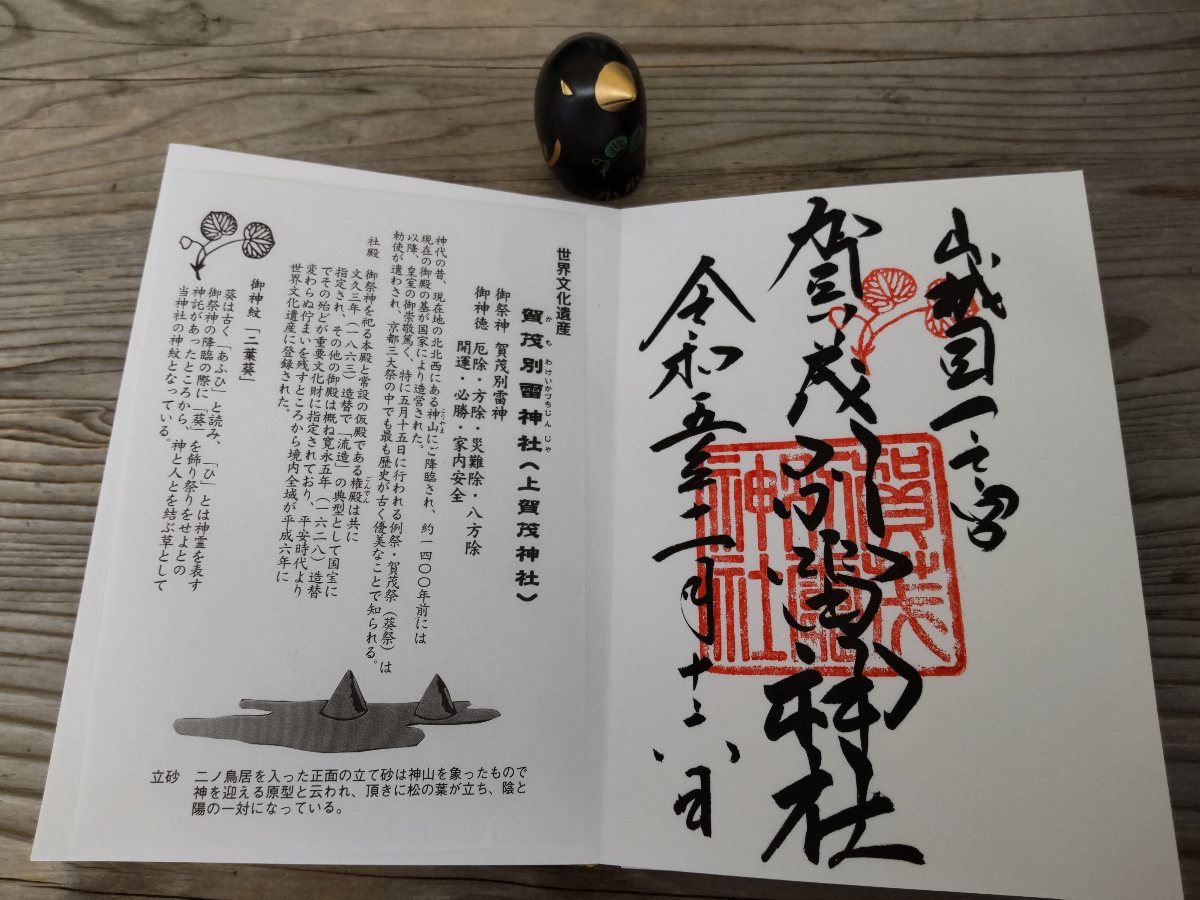 山城国一之宮
賀茂別雷神社
令和五年二月十六日
賀茂
別雷
神社
世界文化遺産
賀茂別雷神社(上賀茂神社)
かもわけいかづちじんじゃ
御祭神 賀茂別雷神
御神徳 厄除・方除・災難除・八方除
開運・必勝・家内安全
神代の昔、現在地の北北西にある神山にご降臨され、約一四〇〇年前には
こうやま
現在の御殿の基が国家により造営された。
以降、皇室の御崇敬篤く、特に五月十五日に行われる例祭・賀茂祭(葵祭)は
勅使が遣わされ、京都三大祭の中でも最も歴史が古く優美なことで知られる。
社殿 御祭神を祀る本殿と常設の仮殿である権殿は共に
ごんでん
文久三年(一八六三)造替で「流造」の典型として国宝に
指定され、その他の御殿は概ね寛永五年(一六二八)造替
でその殆どが重要文化財に指定されており、平安時代より
変わらぬ佇まいを残すところから境内全域が平成六年に
世界文化遺産に登録された。
御神紋「二葉葵」
葵は古く「あふひ」と読み、「ひ」とは神霊を表す
御祭神の降臨の際に「葵」を飾り祭りをせよとの
神託があったところから、神と人とを結ぶ草として
当神社の神紋となっている。
立砂 二ノ鳥居を入った正面の立て砂は神山を象ったもので
神を迎える原型と云われ、頂きに松の葉が立ち、陰と
陽の一対になっている。